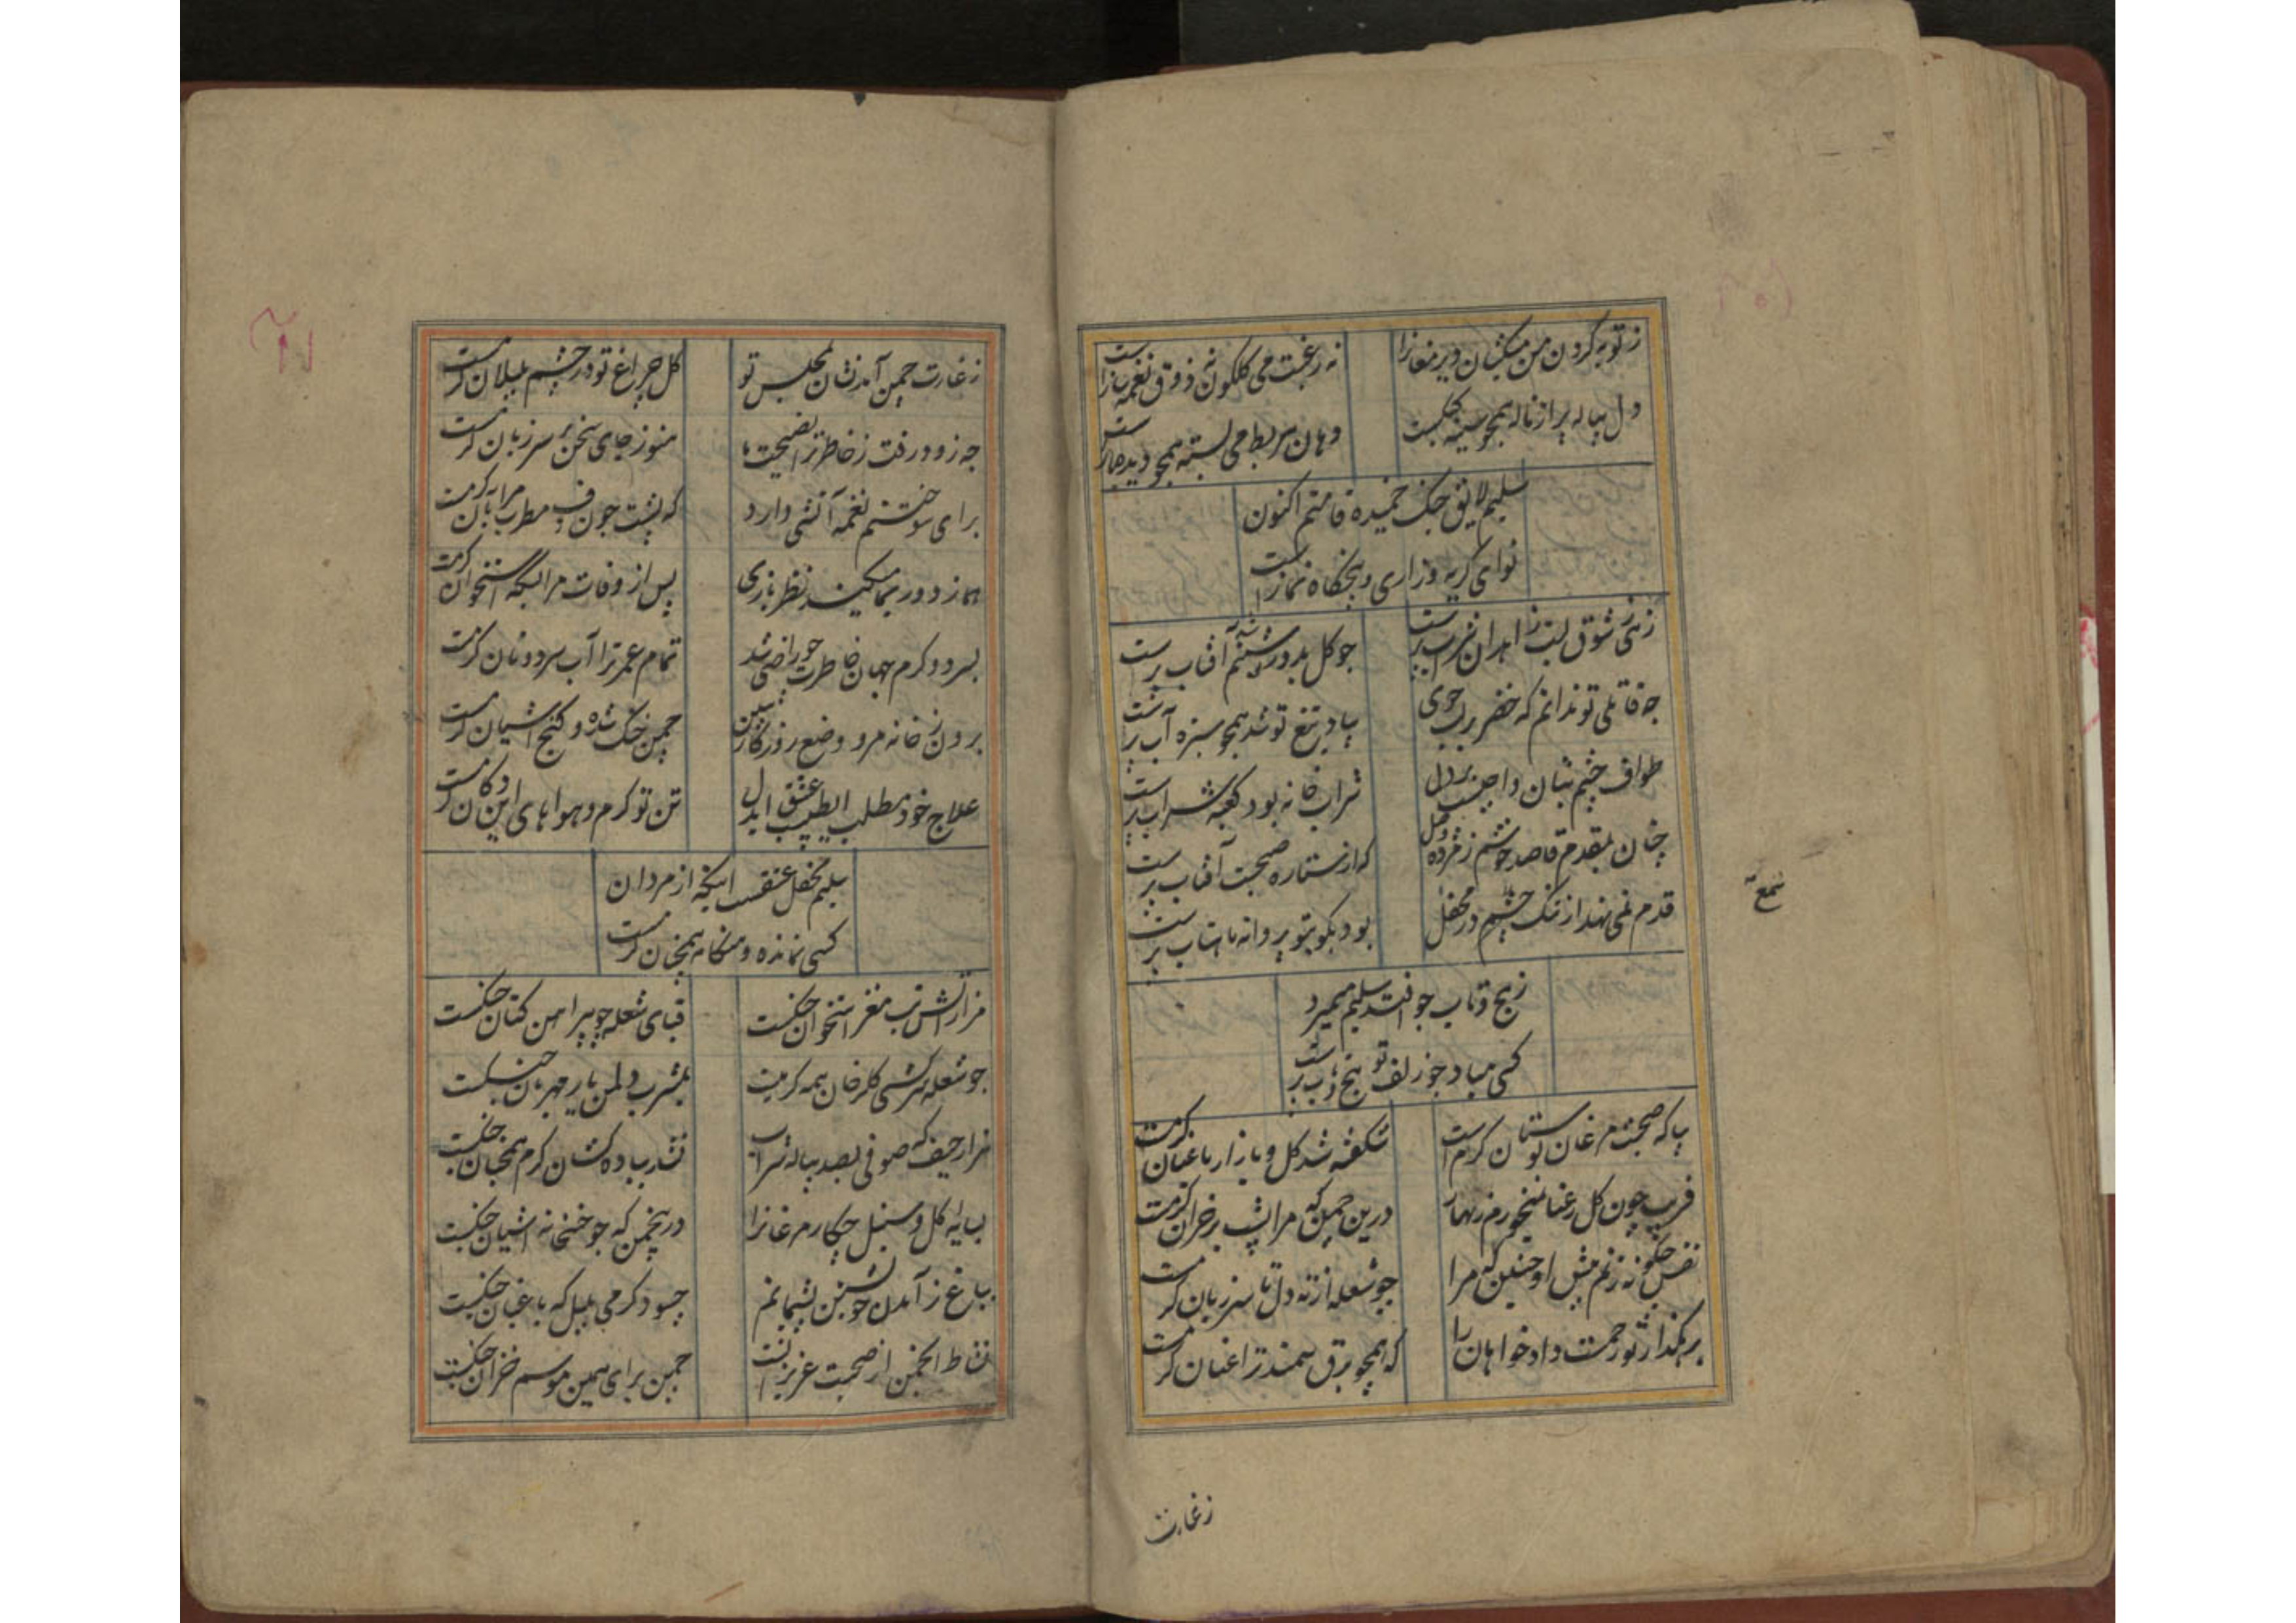 ز توبه کردن من میکشان دیر مغانرا
نه رغبت می گلگون نه ذوق نغمه سازاست
دل پیاله پر از ناله همچو سینه چنگست
دهان بربط می بسته همچو دیده بازاست
سلیم لایق چنگ خمیده قامتم اکنون
نوای گریه و زاری و پنجگاه نمازاست
زهی ز شوق لبت زاهدان شراب پرست
چو گل بدور تو شبنم آفتاب پرست
چه قاتلی تو ندانم که خضر بر لب جوی
بیاد تیغ تو شد همچو سبزه آب پرست
طواف چشم بتان واجبست بر دل
شراب خانه بود کعبه شراب پرست
چنان بمقدم قاصد خوشم ز مژده وصل
که از ستاره صبحست آفتاب پرست
قدم نمی نهد از ننگ چشم در محفل
شمع
بود بکوی تو پروانه ماهتاب پرست
ز پیچ و تاب چو افتد سلیم میمیرد
کسی مباد چو زلف تو پیچ و تاب پرست
بیا که صحبت مرغان بوستان گرمست
شکفته شد گل و بازار باغبان گرمست
فریب چون گل رعنا نمیخورم زنهار
درین چمن که مرا پشت بر خزان گرمست
نفس چگونه زنم پیش او چنین که مرا
چو شعله از ته دل تا سر زبان گرمست
برهگذار تو رحمست دادخواهان را
که همچو برق سمند ترا عنان گرمست
زغارت
ز غارت چمن آمد نشان مجلس تو
گل چراغ تو در چشم بلبلان گرمست
چه زود رفت ز خاطر ترا نصیحت ما
هنوز جای سخن بر سر زبان گرمست
برای سوختنم نغمه آتشی دارد
که پشت چون دف مطرب مرا بآن گرمست
هما ز دور بما میکند نظر بازی
پس از وفات مرا بسکه استخوان گرمست
بسرد و گرم جهان خاطرت چو راضی شد
تمام عمر ترا آب سرد و نان گرمست
برون ز خانه مرو وضع روزگار ببین
چمن خنک شده و کنج آشیان گرمست
علاج خود مطلب از طبیب عشق ایدل
تن تو گرم و هواهای این دکان گرمست
سلیم محفل عشقست اینکه از مردان
کسی نمانده و هنگامه همچنان گرمست
مرا ز آتش تب مغز استخوان خنکست
قبای شعله چو پیراهن کتان خنکست
چو شعله سرکشی گلرخان همه گرمیست
بمشرب دل من یار مهربان خنکست
هزار حیف که صوفی بصد پیاله شراب
نشد بباده کشان گرم همچنان خنکست
بسایه گل و سنبل چکار مرغانرا
درین چمن که چو خسخانه آشیان خنکست
بباغ ز آمدن خویشتن پشیمانم
چسود گرمی بلبل که باغبان خنکست
نشاط انجمن از صحبت عزیزانست
چمن برای همین موسم خزان خنکست